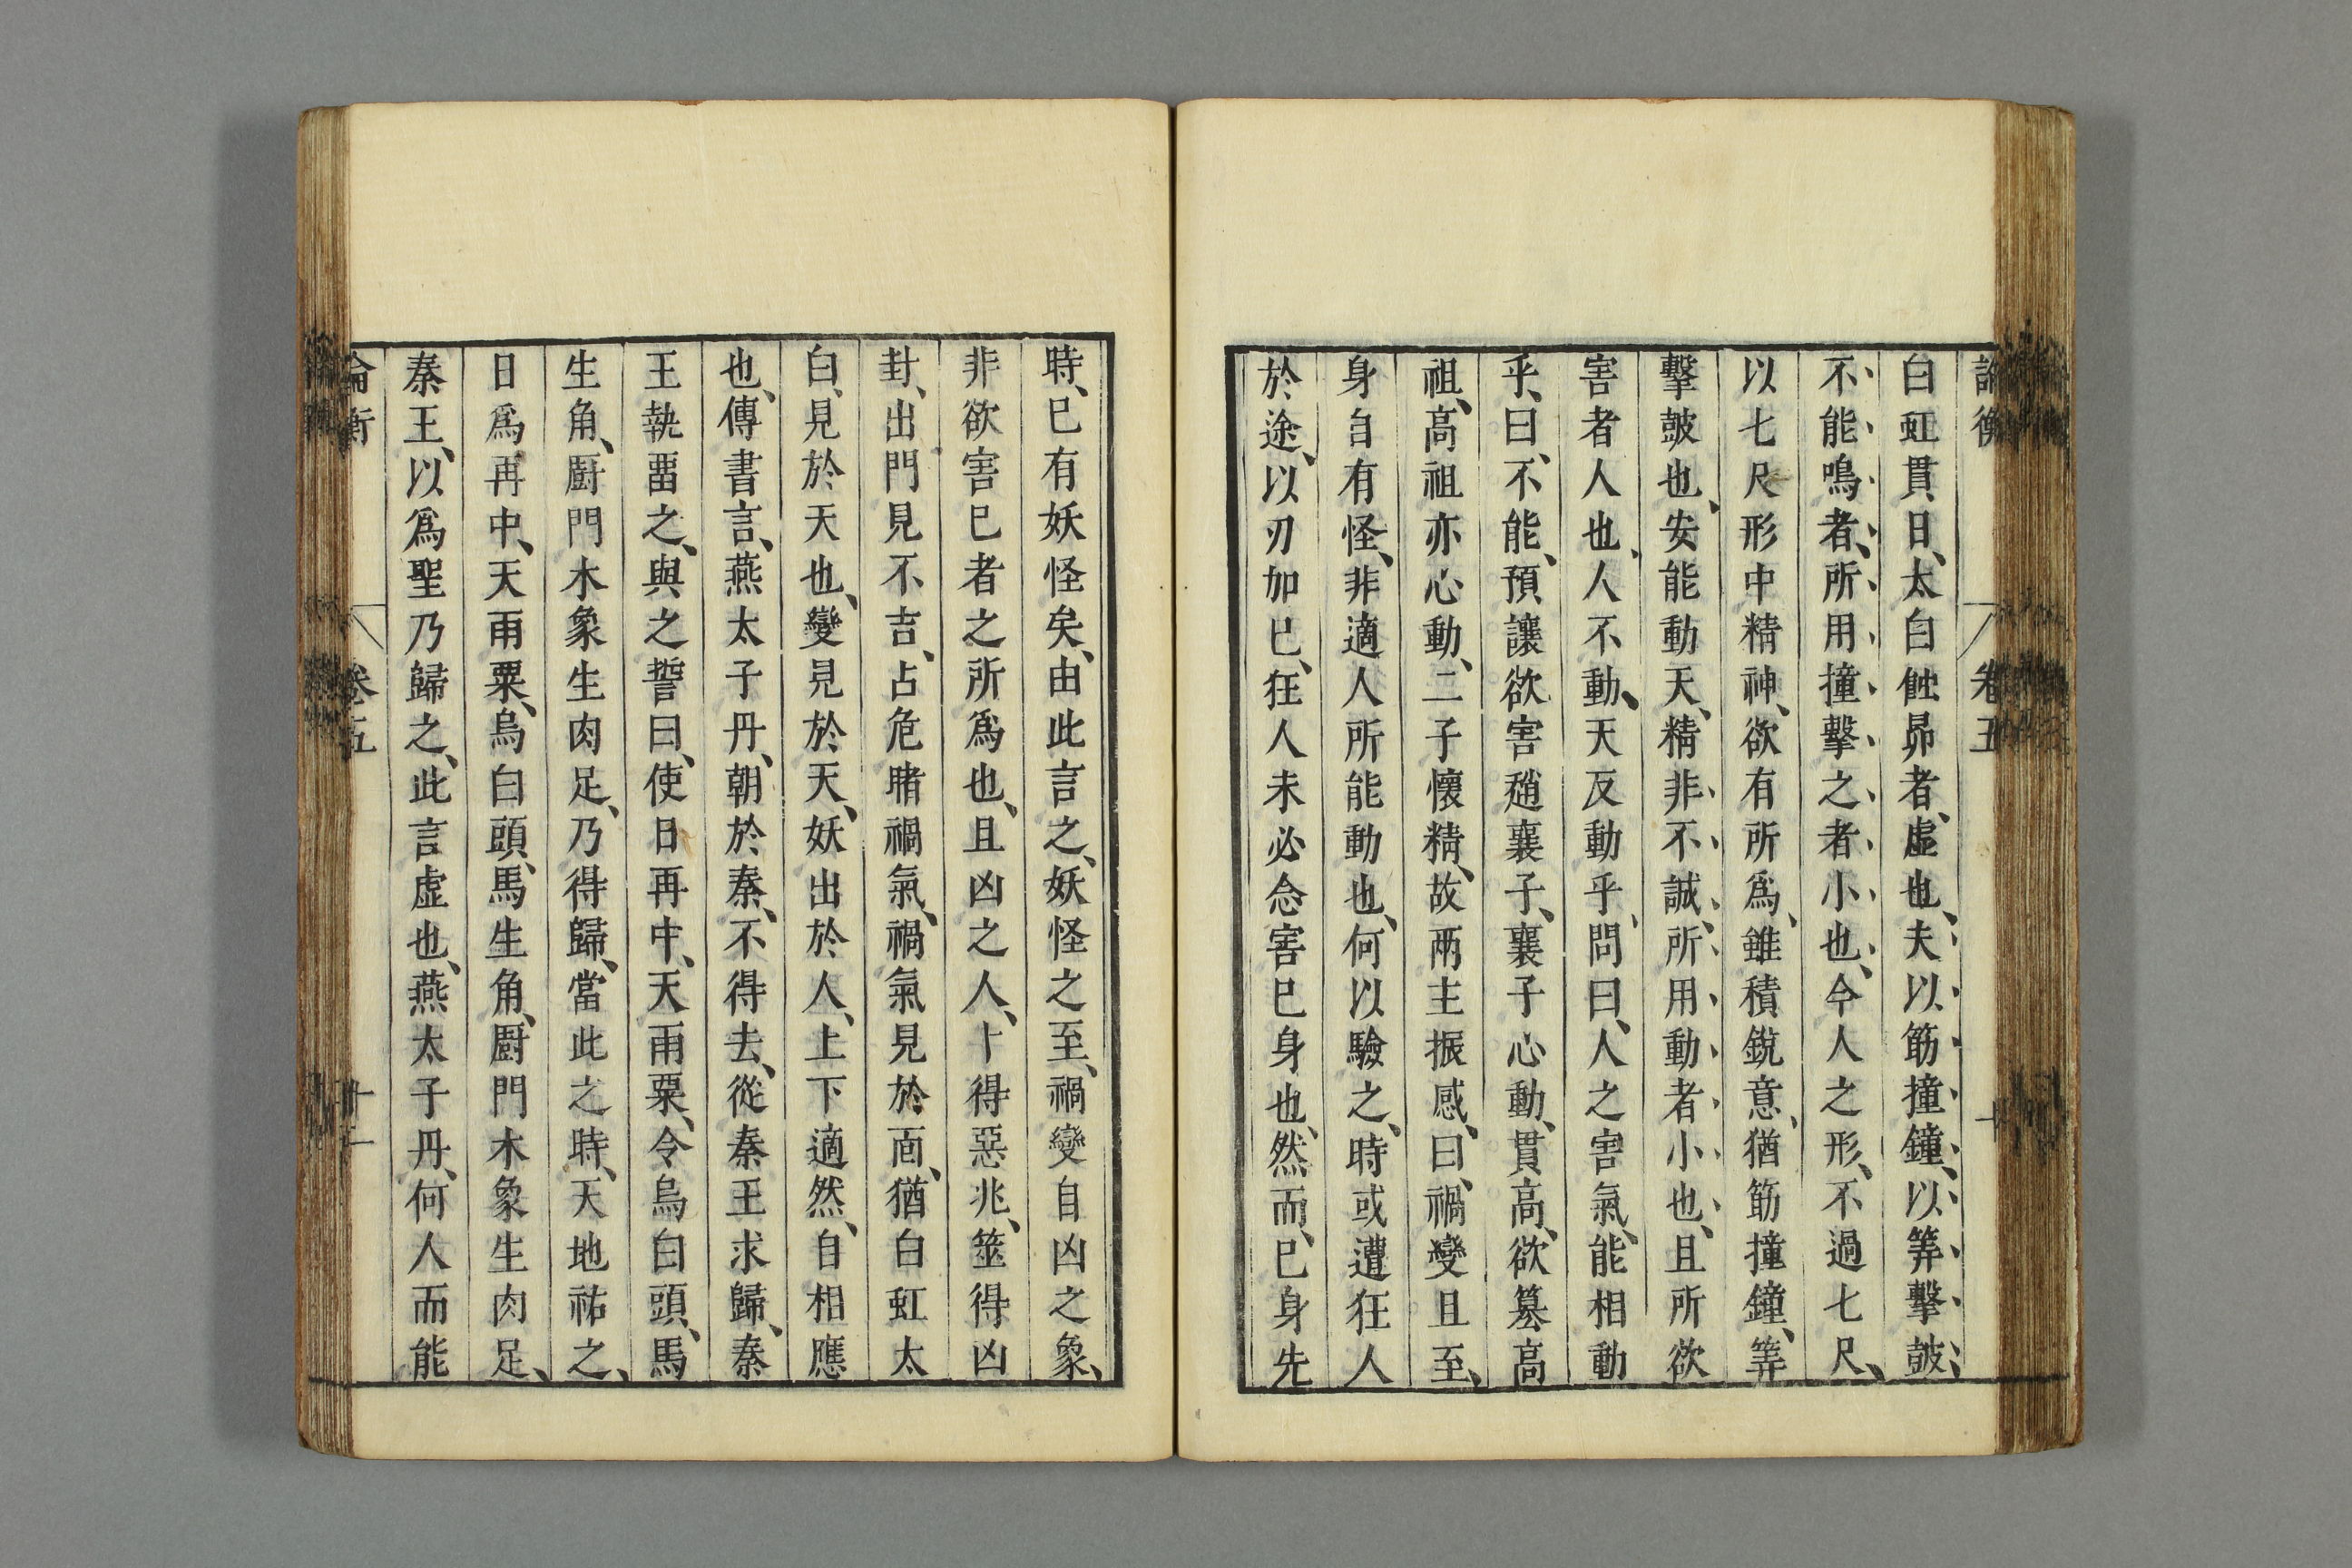 論衡 卷五 十
白虹貫日、太白蝕昴者、虛也、夫以筯撞鐘、以筭擊鼓、
不能鳴者、所用撞擊之者、小也、今人之形、不過七尺、
以七尺形中精神、欲有所爲、雖積銳意、猶筯撞鐘、筭
擊鼓也、安能動天、精非不誠、所用動者小也、且所欲
害者人也、人不動、天反動乎、問曰、人之害氣、能相動
乎、曰、不能、預讓欲害趙襄子、襄子心動、貫高、欲篡高
祖、高祖亦心動、二子懷精、故兩主振感、曰、禍變且至、
身自有怪、非適人所能動也、何以驗之、時或遭狂人
於途、以刃加己、狂人未必念害己身也、然而、己身先
時、已有妖怪矣、由此言之、妖怪之至、禍變自凶之象、
非欲害己者之所爲也、且凶之人、卜得惡兆、筮得凶
卦、出門見不吉、占危睹禍氣、禍氣見於面、猶白虹太
白、見於天也、變見於天、妖出於人、上下適然、自相應
也、傳書言、燕太子丹、朝於秦、不得去、從秦王求歸、秦
王執畱之、與之誓曰、使日再中、天雨粟、令烏白頭、馬
生角、厨門木象生肉足、乃得歸、當此之時、天地祐之、
日爲再中、天雨粟、烏白頭、馬生角、厨門木象生肉足、
秦王、以爲聖乃歸之、此言虛也、燕太子丹、何人而能
論衡 卷五 十一